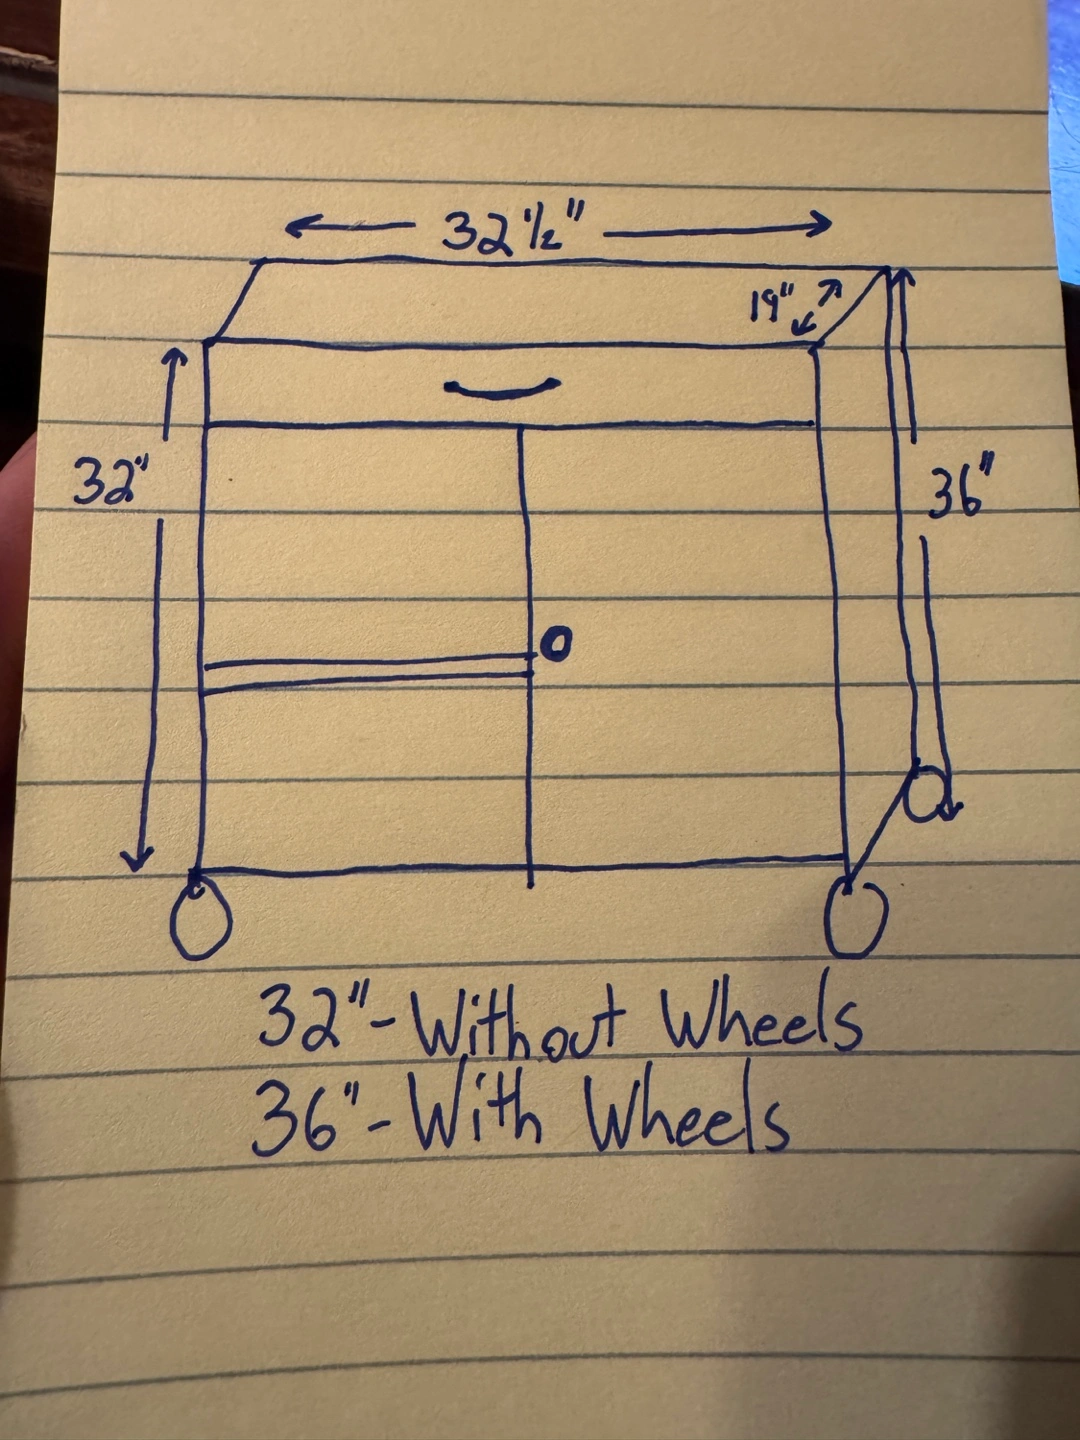 32 1/2"
19"
32"
36"
32"- Without Wheels
36"- With Wheels